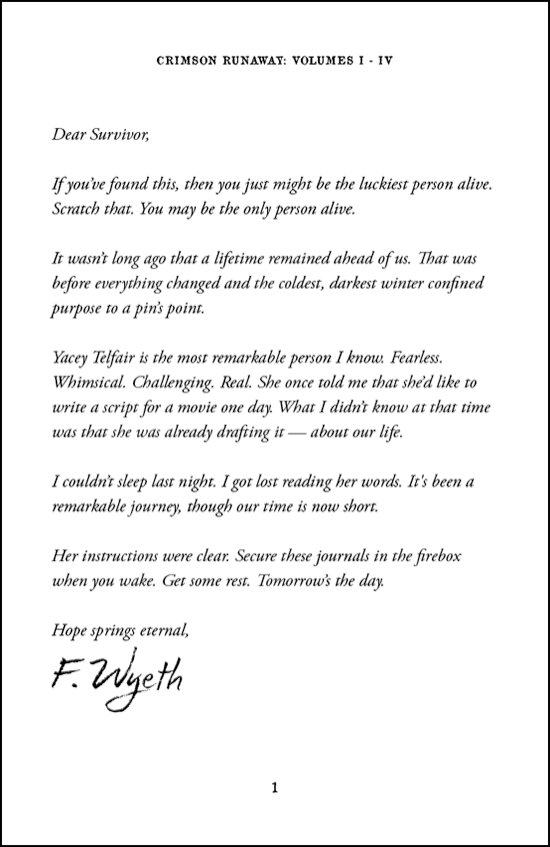 CRIMSON RUNAWAY: VOLUMES I - IV
Dear Survivor,
If you've found this, then you just might be the luckiest person alive.
Scratch that. You may be the only person alive.
It wasn't long ago that a lifetime remained ahead of us. That was
before everything changed and the coldest, darkest winter confined
purpose to a pin's point.
Yacey Telfair is the most remarkable person I know. Fearless.
Whimsical. Challenging. Real. She once told me that she'd like to
write a script for a movie one day. What I didn't know at that time
was that she was already drafting it — about our life.
I couldn't sleep last night. I got lost reading her words. It's been a
remarkable journey, though our time is now short.
Her instructions were clear. Secure these journals in the firebox
when you wake. Get some rest. Tomorrow's the day.
Hope springs eternal,
F. Wyeth
1